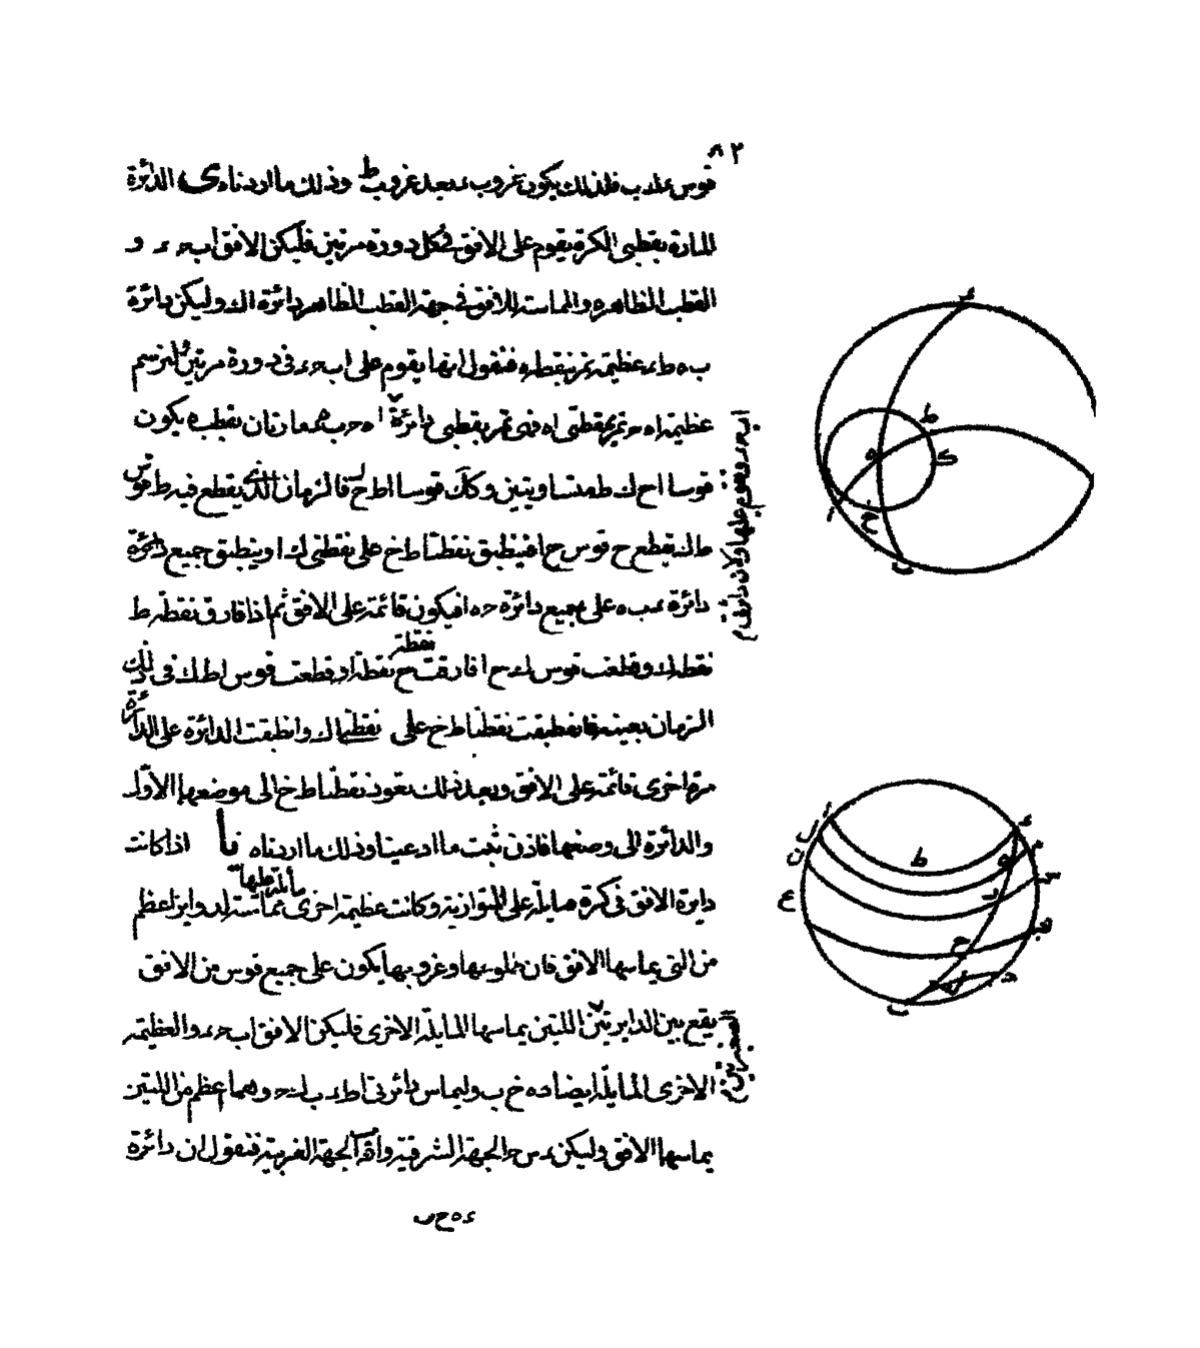 ٨٢
قوس عند ب فلذلك يكون غروب ء بعد غروب ط وذلك ما اردناه ى الدائرة
المارة بقطبى الكرة يقوم على الافق فى كل دورة مرتين فليكن الافق اب حـ ء و
القطب الظاهر ه والمماسة للافق فى جهة القطب الظاهر دائرة اك وليكن دائرة
ب ه ط ء عظيمة تمر بنقطة ه فنقول انها يقوم على اب حـ ء فى دورة مرتين فلنرسم
عظيمة اه حـ تمر بقطتى اه فهى تمر بقطبى دائرة ا ه حـ ب ه مارتان بقطب ه يكون
قوسا اح ك ط متساويتين وكك قوسا اط ح ك فالزمان الذى يقطع فيه ط قوس
ط ك يقطع ح قوس ح ا فينطبق نقطتا ط ح على نقطتى ك ا وينطبق جميع دائرة
دائرة ء ب ه على جميع دائرة حـ ه ا فيكون قائمة على الافق ثم اذا فارق نقطة ط
نقطة ك وقطعت قوس ك ح ا فارقت ح نقطة ا وقطعت قوس اط ك فى ذلك
نقطة
الزمان بعينه فانطبقت نقطتا ط ح على نقطتى اك وانطبقت الدائرة على الدائرة
مرة اخرى قائمة على الافق وبعد ذلك تعود نقطتا ط ح الى موضعها الاول
والدائرة الى وضعها فاذن ثبت ما ادعينا وذلك ما اردناه يا اذا كانت
دايرة الافق فى كرة مايلة على المتوازية وكانت عظيمة اخرى مماسة لدواير اعظم
مائلة عليها
من التى يماسها الافق فان طلوعها وغروبها يكون على جميع قوس من الافق
يقع بين الدايرتين اللتين يماسها المايلة الاخرى فليكن الافق اب حـ ء والعظيمة
الاخرى المايلة ايضا ده ح ب وليماس دائرتى اط ء ب ك حـ وهما اعظم من اللتين
يماسها الافق وليكن ء س حـ الجهة الشرقية و الجهة الغربية فنقول ان دائرة
ء ه ح ب
اب حـ ء وهو عليها ولان دائرتى
ء
ط
ه
ك
ا
ح
ب
ا
ل
ن
ع
ط
ء
ه
م
س
ح
ب